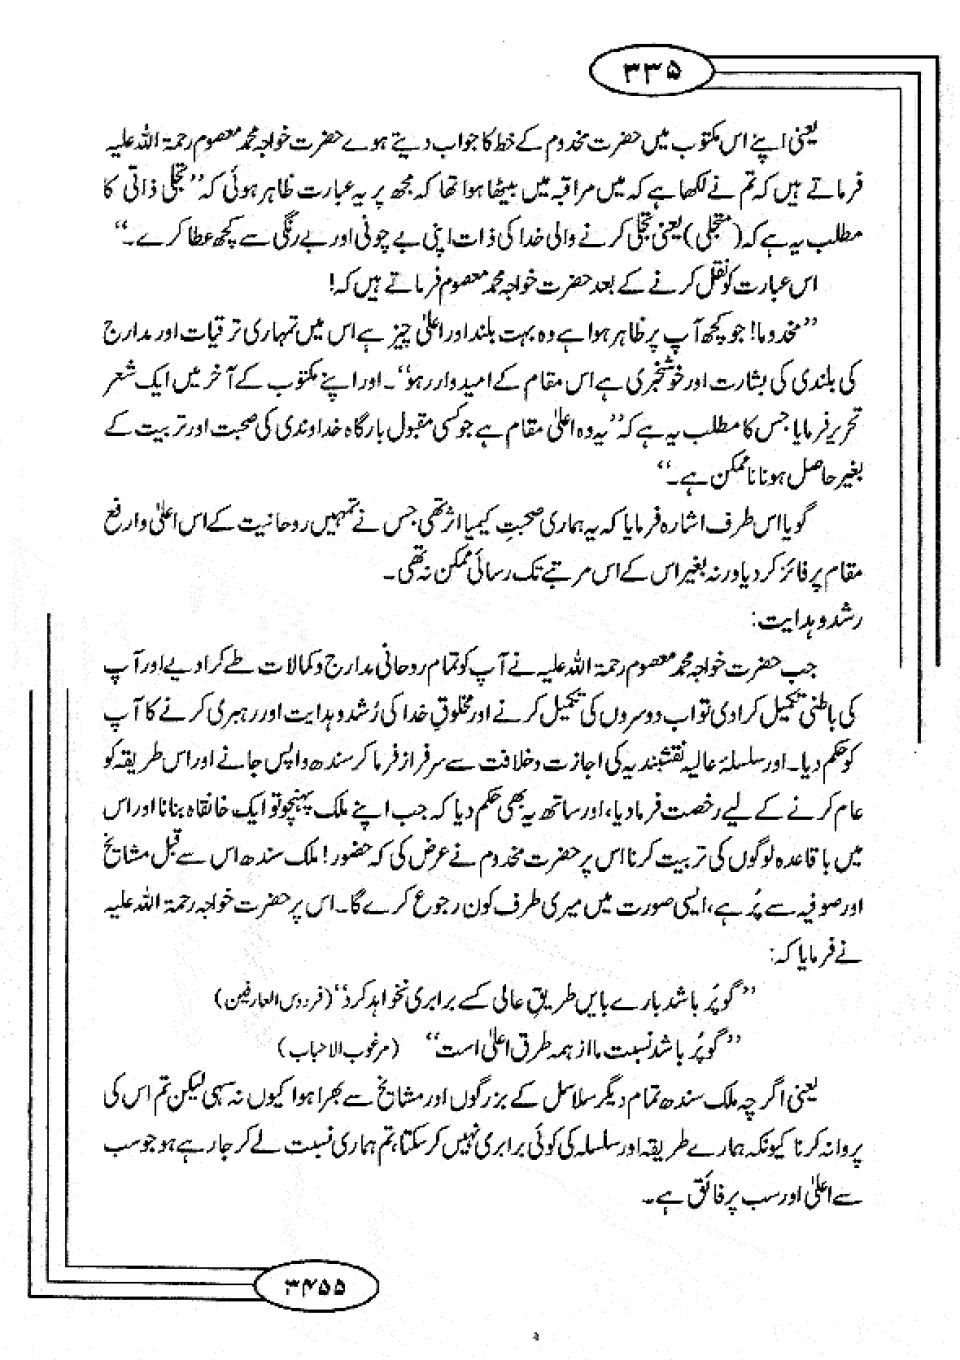 ۳۳۵
یعنی اپنے اس مکتوب میں حضرت مخدوم کے خط کا جواب دیتے ہوے حضرت خواجہ محمد معصوم رحمۃ اللہ علیہ
فرماتے ہیں کہ تم نے لکھا ہے کہ میں مراقبہ میں بیٹھا ہوا تھا کہ مجھ پر یہ عبارت ظاہر ہوئی کہ ”تجلی ذاتی کا
مطلب یہ ہے کہ (متجلی) یعنی تجلی کرنے والی خدا کی ذات اپنی بے چونی اور بے رنگی سے کچھ عطا کرے۔“
اس عبارت کو نقل کرنے کے بعد حضرت خواجہ محمد معصوم فرماتے ہیں کہ!
”مخدوما! جو کچھ آپ پر ظاہر ہوا ہے وہ بہت بلند اور اعلیٰ چیز ہے اس میں تمہاری ترقیات اور مدارج
کی بلندی کی بشارت اور خوشخبری ہے اس مقام کے امیدوار رہو“۔ اور اپنے مکتوب کے آخر میں ایک شعر
تحریر فرمایا جس کا مطلب یہ ہے کہ ”یہ وہ اعلیٰ مقام ہے جو کسی مقبول بارگاہ خداوندی کی صحبت اور تربیت کے
بغیر حاصل ہونا ناممکن ہے۔“
گویا اس طرف اشارہ فرمایا کہ یہ ہماری صحبتِ کیمیا اثر تھی جس نے تمہیں روحانیت کے اس اعلیٰ وارفع
مقام پر فائز کر دیا ورنہ بغیر اس کے اس مرتبے تک رسائی ممکن نہ تھی۔
رشد و ہدایت:
جب حضرت خواجہ محمد معصوم رحمۃ اللہ علیہ نے آپ کو تمام روحانی مدارج و کمالات طے کرا دیے اور آپ
کی باطنی تکمیل کرا دی تو اب دوسروں کی تکمیل کرنے اور مخلوقِ خدا کی رُشد و ہدایت اور رہبری کرنے کا آپ
کو حکم دیا۔ اور سلسلۂ عالیہ نقشبندیہ کی اجازت و خلافت سے سرفراز فرما کر سندھ واپس جانے اور اس طریقہ کو
عام کرنے کے لیے رخصت فرما دیا، اور ساتھ یہ بھی حکم دیا کہ جب اپنے ملک پہنچو تو ایک خانقاہ بنانا اور اس
میں باقاعدہ لوگوں کی تربیت کرنا اس پر حضرت مخدوم نے عرض کی کہ حضور! ملک سندھ اس سے قبل مشایخ
اور صوفیہ سے پُر ہے، ایسی صورت میں میری طرف کون رجوع کرے گا۔ اس پر حضرت خواجہ رحمۃ اللہ علیہ
نے فرمایا کہ:
”گو پُر باشد بارے بایں طریقِ عالی کسے برابری نخواہد کرد“ (فردوس العارفین)
”گو پُر باشد نسبت ما از ہمہ طرق اعلیٰ است“ (مرغوب الاحباب)
یعنی اگرچہ ملک سندھ تمام دیگر سلاسل کے بزرگوں اور مشایخ سے بھرا ہوا کیوں نہ سہی لیکن تم اس کی
پروا نہ کرنا کیونکہ ہمارے طریقہ اور سلسلہ کی کوئی برابری نہیں کر سکتا، تم ہماری نسبت لے کر جا رہے ہو جو سب
سے اعلیٰ اور سب پر فائق ہے۔
۳۴۵۵